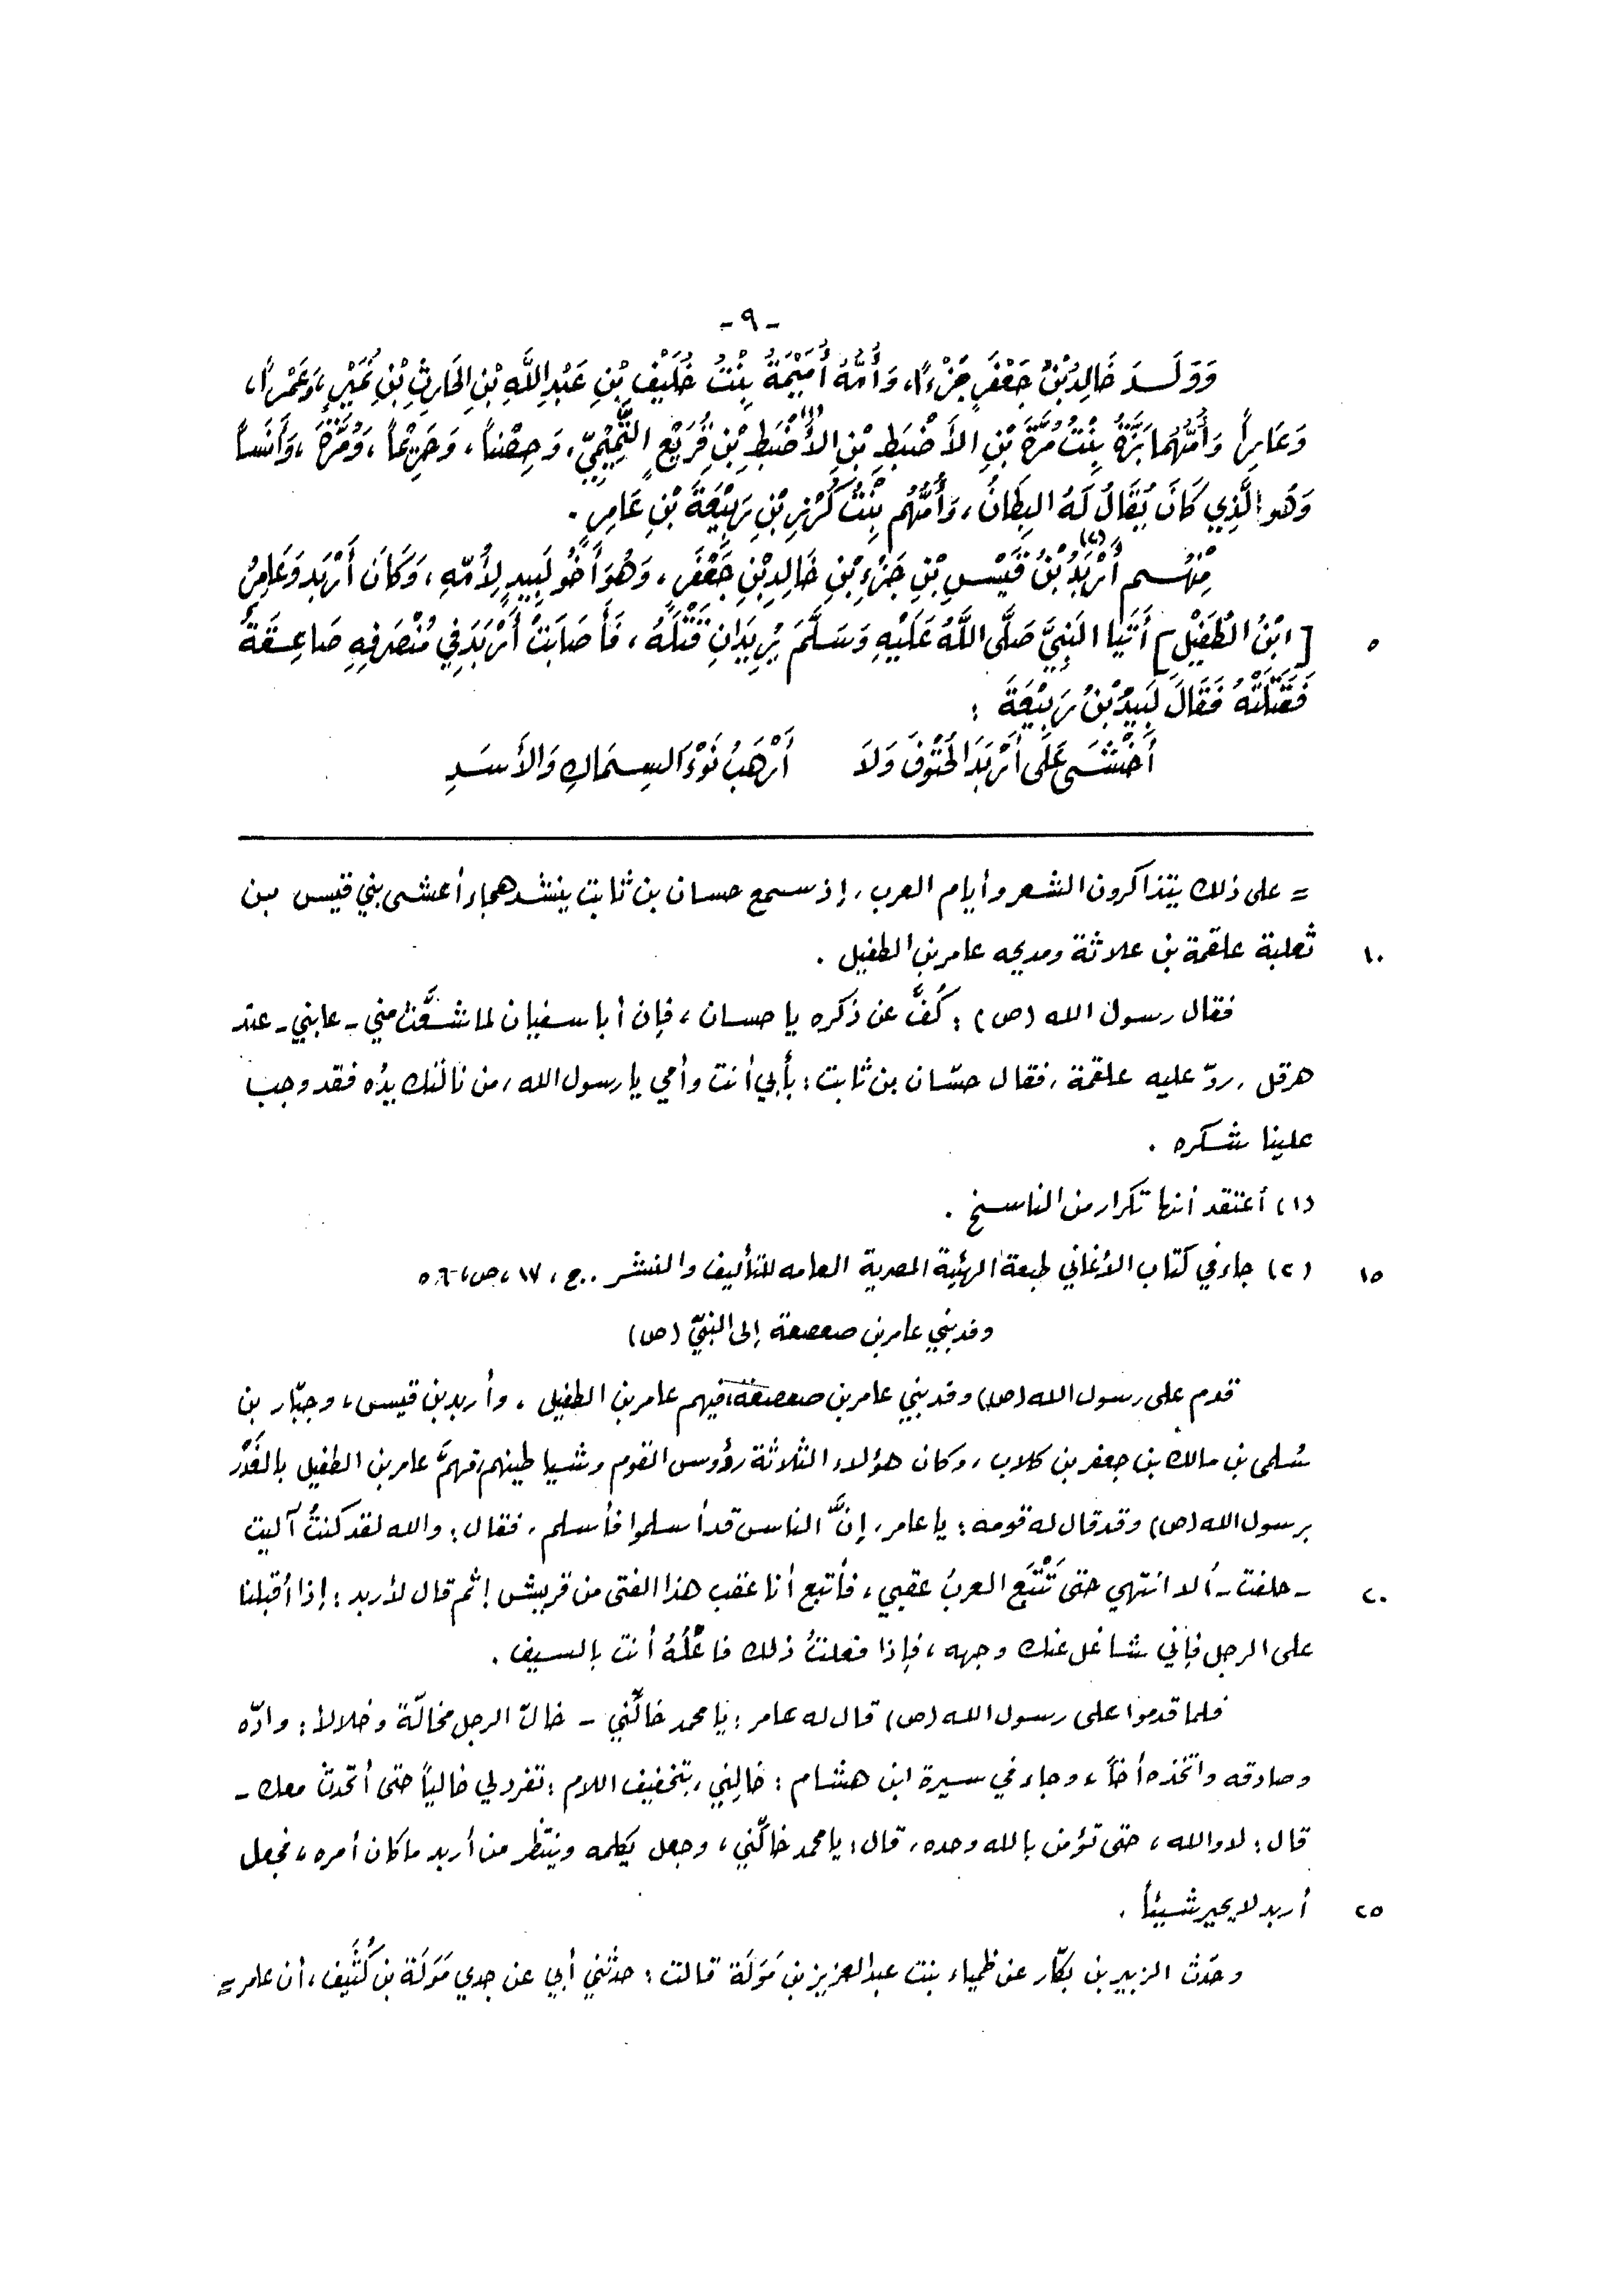 -٩-
وَوَلَـدَ خَالِدُ بْنُ جَعْفَرٍ جَزْءاً، وَأُمُّهُ أُمَيْمَةُ بِنْتُ خُلَيْفِ بْنِ عَبْدِ اللَّهِ بْنِ الحَارِثِ بْنِ نُمَيْرٍ، وَعَمْراً،
وَعَامِراً وَأُمُّهُمَا بَرَّةُ بِنْتُ مُرَّةَ بْنِ الأَضْبَطِ بْنِ الأَضْبَطِ (١) بْنِ قُرَيْعٍ التَّمِيْمِيِّ، وَحِصْناً، وَحَرِيْماً، وَمُرَّةَ، وَأَنَساً
وَهُوَ الَّذِي كَانَ يُقَالُ لَهُ البِطَانُ، وَأُمُّهُم بِنْتُ كُرْزِ بْنِ رَبِيْعَةَ بْنِ عَامِرٍ .
مِنْهُـم أَرْبَدُ (٢) بْنُ قَيْسِ بْنِ جَزْءِ بْنِ خَالِدِ بْنِ جَعْفَرٍ، وَهُوَ أَخُو لَبِيدٍ لِأُمِّهِ، وَكَانَ أَرْبَد وَعَامِرُ
٥ [ابْنُ الطُفَيْلِ] أَتَيَا النَبِيَّ صَلَّى اللَّهُ عَلَيْهِ وَسَلَّمَ يُرِيدَانِ قَتْلَهُ، فَأَصَابَتْ أَرْبَدَ فِي مُنْصَرَفِهِ صَاعِقَةٌ
فَقَتَلَتْهُ فَقَالَ لَبِيدُ بْنُ رَبِيْعَةَ :
أَخْشَـى عَلَى أَرْبَدَ الحُتُوفَ وَلَا أَرْهَبُ نَوْءَ السِـمَاكِ وَالأَسَـدِ
= على ذلك يتذاكرون الشعر وأيام العرب، إذ سمع حسان بن ثابت ينشد هجاء أعشى بني قيس بن
١٠ ثعلبة علقمة بن علاثة ومديحه عامر بن الطفيل .
فقال رسول الله (ص) : كُفَّ عن ذكره يا حسان، فإن أبا سفيان لما شعَّث مني - عابني - عند
هرقل، ردّ عليه علقمة، فقال حسّان بن ثابت : بأبي أنت وأمي يا رسول الله، من نالتك يدُه فقد وجب
علينا شكره .
(١) أعتقد أنها تكرار من الناسخ .
١٥ (٢) جاء في كتاب الأغاني طبعة الهيئة المصرية العامه للتأليف والنشر .. ج، ١٧، ص، ٥٦
وفد بني عامر بن صعصعة إلى النبيّ (ص)
قدم على رسول الله (ص) وفد بني عامر بن صعصعة، فيهم عامر بن الطفيل، وأربد بن قيس، وجبّار بن
سُلمى بن مالك بن جعفر بن كلاب، وكان هؤلاء الثلاثة رؤوس القوم وشياطينهم، فهمَّ عامر بن الطفيل بالغَدْر
برسول الله (ص) وقد قال له قومه : يا عامر، إنَّ الناس قد أسلموا فأسلم، فقال : والله لقد كنتُ آليت
٢٠ - حلفت - ألا انتهي حتى تَتْبَع العربُ عقبي، فأتبع أنا عقب هذا الفتى من قريش ! ثم قال لأربد : إذا أقبلنا
على الرجل فإني شاغل عنك وجهه، فإذا فعلتُ ذلك فاعْلُهُ أنت بالسيف .
فلما قدموا على رسول الله (ص) قال له عامر : يا محمد خالّني - خالّ الرجل مخالّة وخلالاً : وادّه
وصادقه واتخذه أخاً، وجاء في سيرة ابن هشام : خالِني، بتخفيف اللام : تفرد لي خالياً حتى أتحدث معك -
قال : لا والله، حتى تؤمن بالله وحده، قال : يا محمد خالّني، وجعل يكلمه وينتظر من أربد ما كان أمره، فجعل
٢٥ أربد لا يحير شيئاً .
وحَدث الزبير بن بكّار عن ظمياء بنت عبد العزيز بن مَوَلَة قالت : حدثني أبي عن جدي مَوَلَة بن كُثَيف، أن عامر =